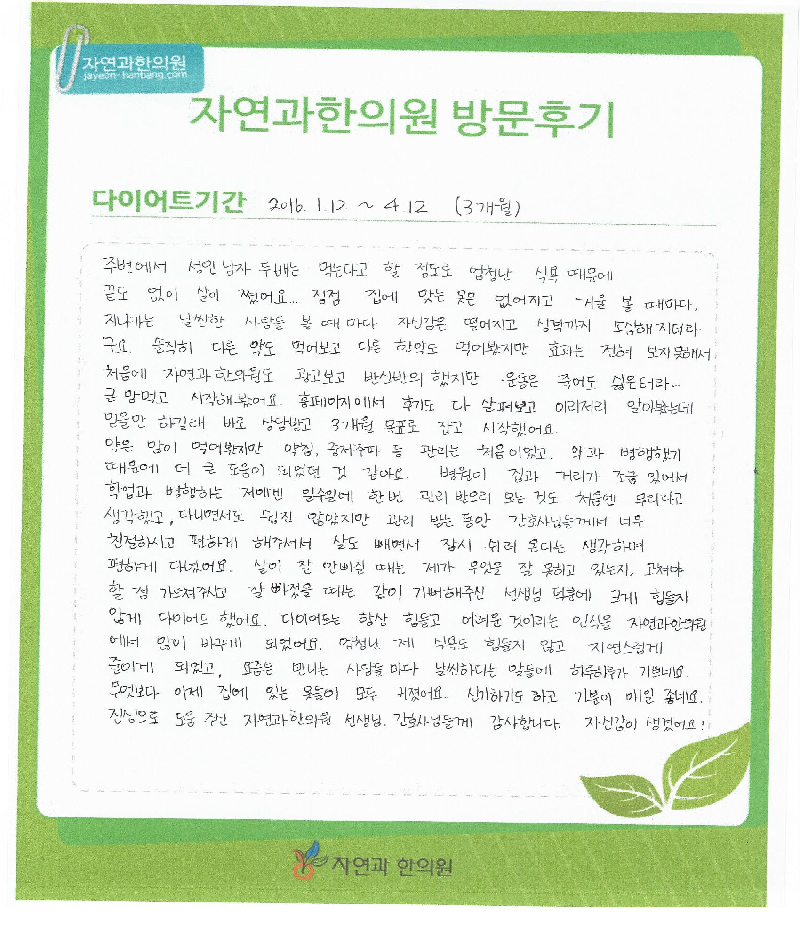 자연과한의원
jayeon-hanbang.com
자연과한의원 방문후기
다이어트기간 2016. 1.12 ~ 4.12 (3개월)
주변에서 성인 남자 두배는 먹는다고 할 정도로 엄청난 식욕 때문에
끝도 없이 살이 쪘어요... 점점 집에 맞는 옷은 없어지고 거울 볼 때마다,
지나가는 날씬한 사람들 볼 때 마다 자신감은 떨어지고 성격까지 소심해 지더라
구요. 솔직히 다른 약도 먹어보고 다른 한약도 먹어봤지만 효과는 전혀 보지못해서
처음에 자연과한의원도 광고보고 반신반의 했지만 운동은 죽어도 싫은터라...
큰 맘먹고 시작해봤어요. 홈페이지에서 후기도 다 살펴보고 이리저리 알아봤는데
믿을만 하길래 바로 상담받고 3개월 목표로 잡고 시작했어요.
약은 많이 먹어봤지만 약침, 중저주파 등 관리는 처음이었고. 약과 병행했기
때문에 더 큰 도움이 되었던 것 같아요. 병원이 집과 거리가 조금 있어서
학업과 병행하는 저에겐 일주일에 한번 관리 받으러 오는 것도 처음엔 무리라고
생각했고, 다니면서도 쉽진 않았지만 관리 받는 동안 간호사님들께서 너무
친절하시고 편하게 해주셔서 살도 빼면서 잠시 쉬러 온다는 생각하며
편하게 다녔어요. 살이 잘 안빠질 때는 제가 무엇을 잘 못하고 있는지, 고쳐야
할 점 가르쳐주시고 잘 빠졌을 때는 같이 기뻐해주신 선생님 덕분에 크게 힘들지
않게 다이어트 했어요. 다이어트는 항상 힘들고 어려운 것이라는 인식을 자연과한의원
에서 많이 바꾸게 되었어요. 엄청난 제 식욕도 힘들지 않고 자연스럽게
줄이게 되었고, 요즘은 만나는 사람들 마다 날씬하다는 말들에 하루하루가 기쁘네요.
무엇보다 이제 집에 있는 옷들이 모두 커졌어요. 신기하기도 하고 기분이 매일 좋네요.
진심으로 도움 주신 자연과한의원 선생님, 간호사님들께 감사합니다. 자신감이 생겼어요!
자연과 한의원